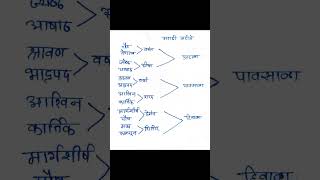 मराठी महिने
चैत्र
वैशाख
वसंत
ज्येष्ठ
आषाढ
ग्रीष्म
उन्हाळा
श्रावण
भाद्रपद
वर्षा
आश्विन
कार्तिक
शरद
पावसाळा
मार्गशीर्ष
पौष
हेमंत
माघ
फाल्गुन
शिशिर
हिवाळा
आषाढ
श्रावण
भाद्रपद
आश्विन
कार्तिक
मार्गशीर्ष
पावसाळा